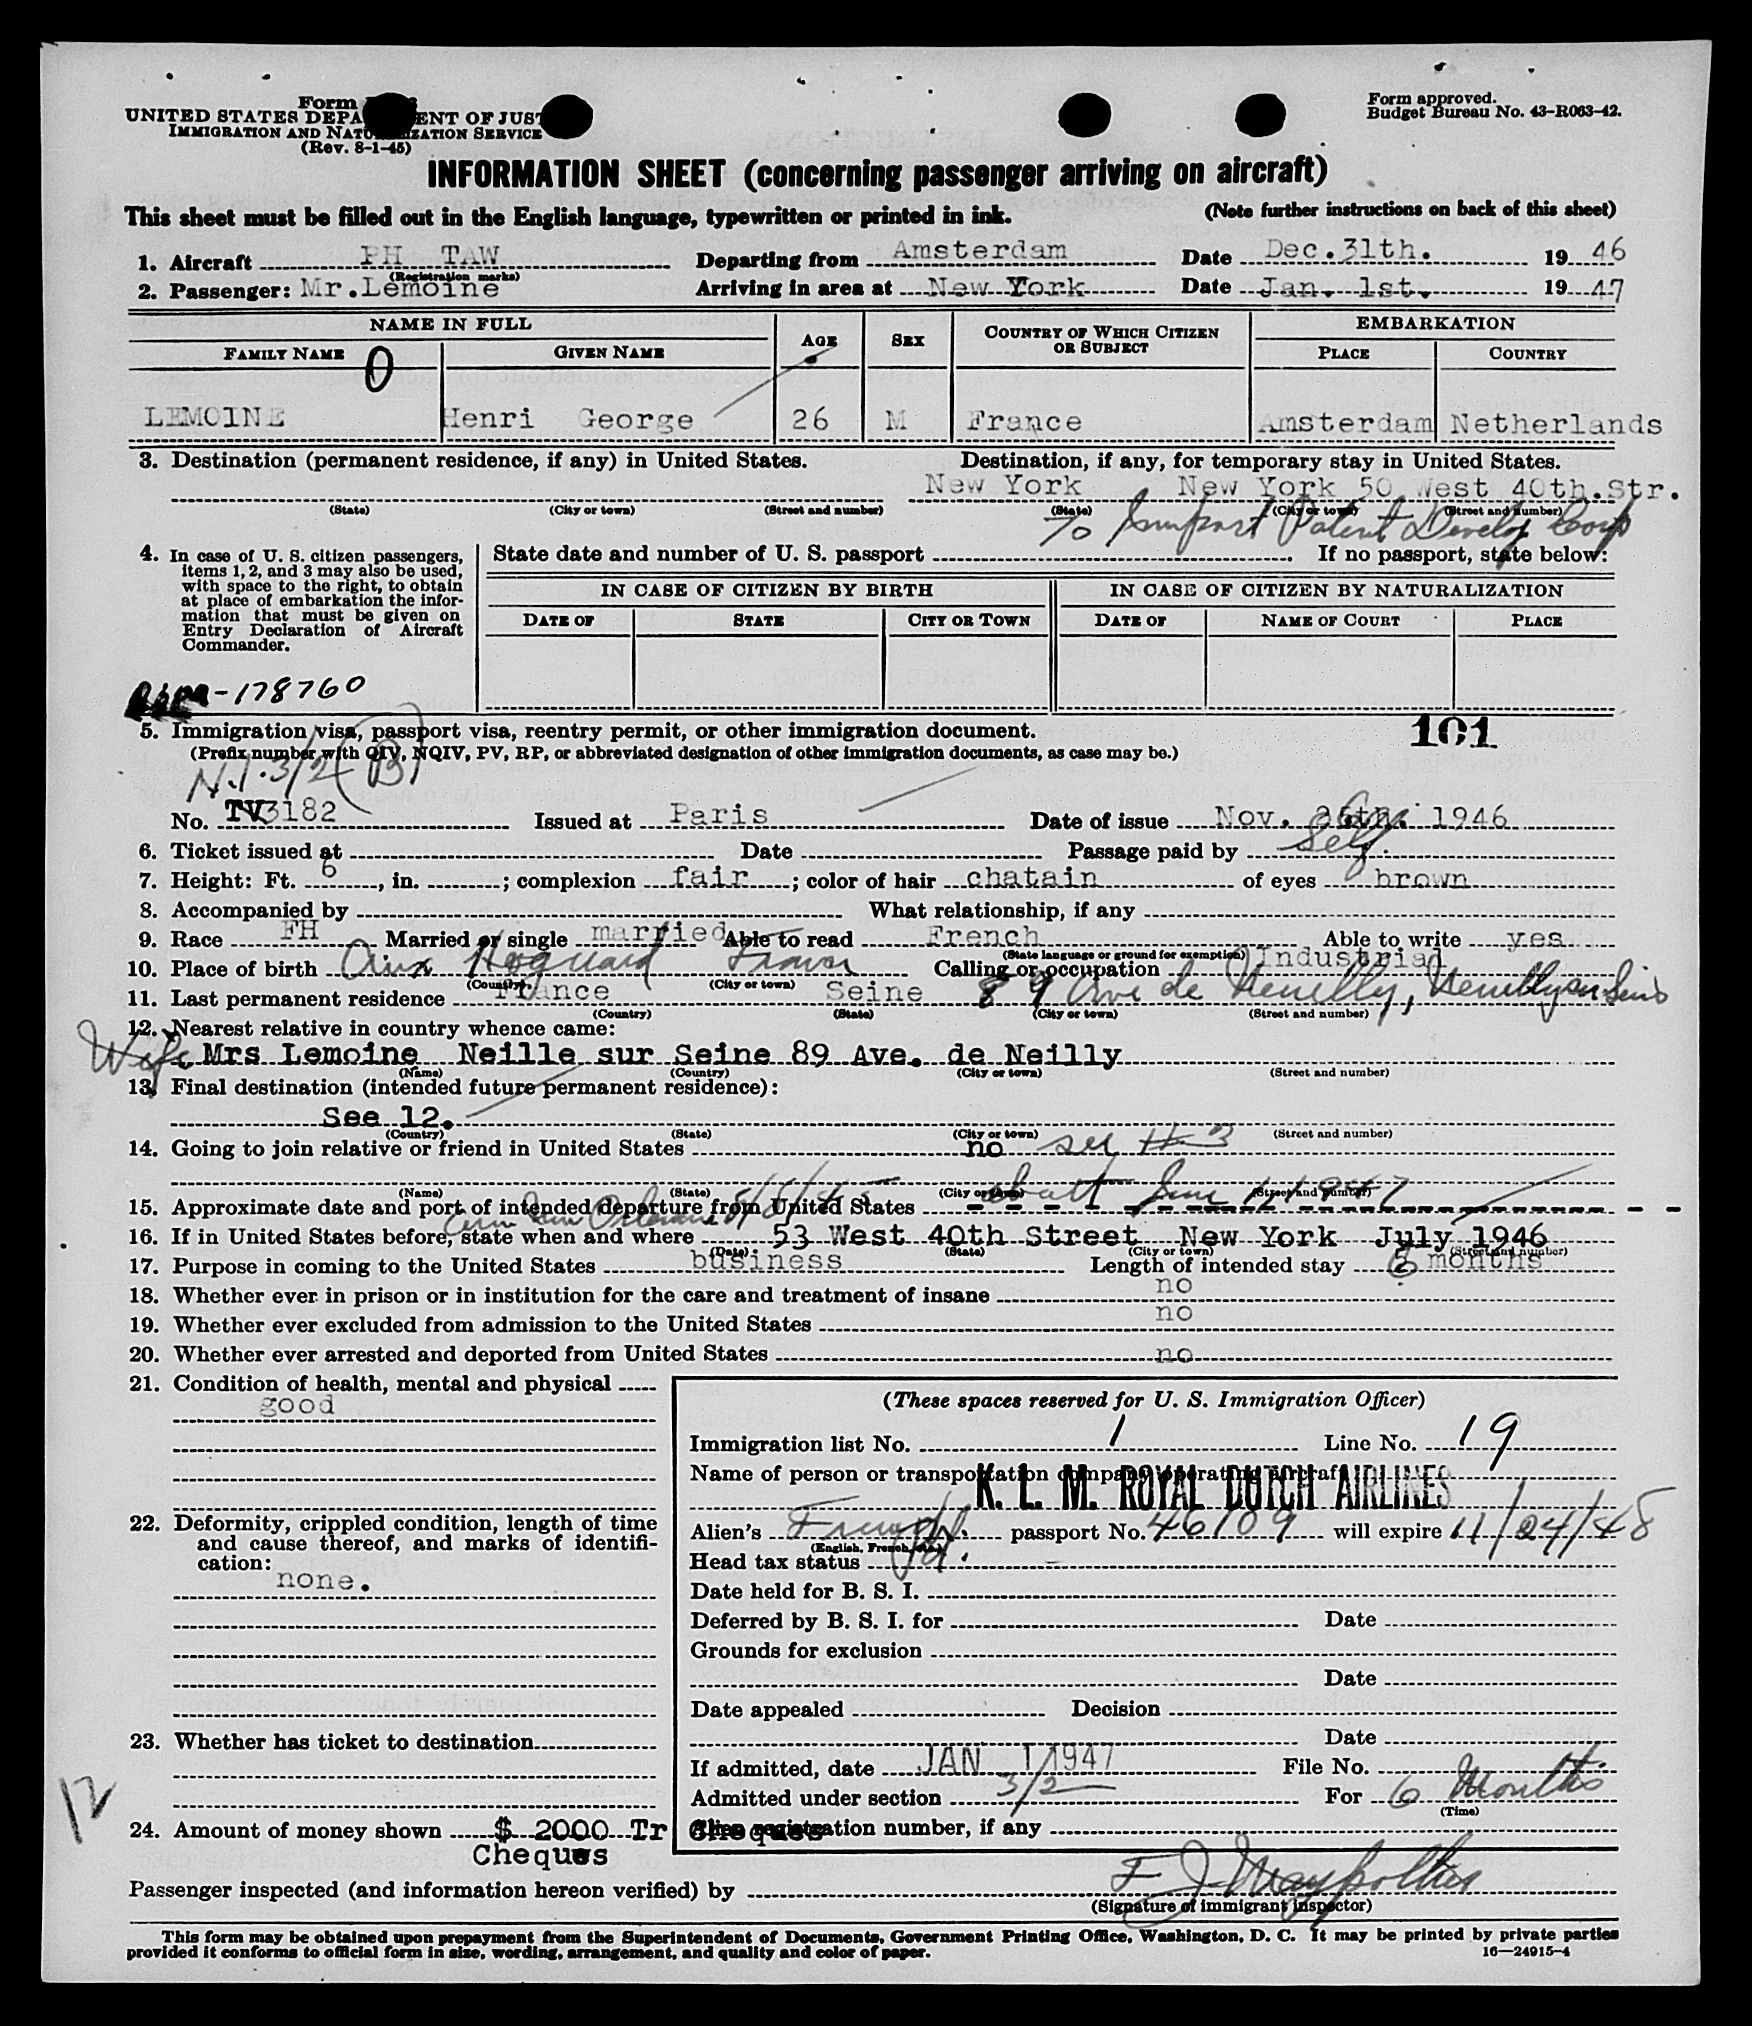 Form
UNITED STATES DEPA ENT OF JUST
IMMIGRATION AND NATU IZATION SERVICE
(Rev. 8-1-45)
Form approved.
Budget Bureau No. 43-R063-42.
INFORMATION SHEET (concerning passenger arriving on aircraft)
This sheet must be filled out in the English language, typewritten or printed in ink.
(Note further instructions on back of this sheet)
1. Aircraft PH TAW Departing from Amsterdam Date Dec.31th. 19 46
(Registration marks)
2. Passenger: Mr.Lemoine Arriving in area at New York Date Jan. 1st. 19 47
NAME IN FULL AGE SEX COUNTRY OF WHICH CITIZEN OR SUBJECT EMBARKATION
FAMILY NAME GIVEN NAME PLACE COUNTRY
0
LEMOINE Henri George 26 M France Amsterdam Netherlands
3. Destination (permanent residence, if any) in United States. Destination, if any, for temporary stay in United States.
New York New York 50 West 40th.Str.
(State) (City or town) (Street and number) (State) (City or town) (Street and number)
Patent Develop Corp
4. In case of U. S. citizen passengers, items 1, 2, and 3 may also be used, with space to the right, to obtain at place of embarkation the information that must be given on Entry Declaration of Aircraft Commander.
State date and number of U. S. passport If no passport, state below:
IN CASE OF CITIZEN BY BIRTH IN CASE OF CITIZEN BY NATURALIZATION
DATE OF STATE CITY OR TOWN DATE OF NAME OF COURT PLACE
-178760
5. Immigration visa, passport visa, reentry permit, or other immigration document.
101
(Prefix number with QIV, NQIV, PV, RP, or abbreviated designation of other immigration documents, as case may be.)
N.I. 3/2 (B)
No. TV3182 Issued at Paris Date of issue Nov. 26th. 1946
6. Ticket issued at Date Passage paid by Self
7. Height: Ft. 6, in. ; complexion fair ; color of hair chatain of eyes brown
8. Accompanied by What relationship, if any
9. Race FH Married or single married Able to read French Able to write yes
(State language or ground for exemption)
10. Place of birth France Calling or occupation Industrial
(Country) (City or town)
11. Last permanent residence France Seine 89 Ave de Neuilly, Neuilly sur Seine
(Country) (State) (City or town) (Street and number)
12. Nearest relative in country whence came:
Wife Mrs Lemoine Neille sur Seine 89 Ave. de Neilly
(Name) (Country) (City or town) (Street and number)
13. Final destination (intended future permanent residence):
See 12.
(Country) (State) (City or town) (Street and number)
14. Going to join relative or friend in United States no see # 3
(Name) (State) (City or town) (Street and number)
15. Approximate date and port of intended departure from United States about
New Orleans
16. If in United States before, state when and where 53 West 40th Street New York July 1946
(Date) (State) (City or town) (Street and number)
17. Purpose in coming to the United States business Length of intended stay 6 months
18. Whether ever in prison or in institution for the care and treatment of insane no
19. Whether ever excluded from admission to the United States no
20. Whether ever arrested and deported from United States no
21. Condition of health, mental and physical
good
(These spaces reserved for U. S. Immigration Officer)
Immigration list No. 1 Line No. 19
Name of person or transportation company operating aircraft
K. L. M. ROYAL DUTCH AIRLINES
22. Deformity, crippled condition, length of time and cause thereof, and marks of identification:
none.
Alien's French passport No. 46109 will expire 11/24/48
(English, French, etc.)
Head tax status
Date held for B. S. I.
Deferred by B. S. I. for Date
Grounds for exclusion
Date
Date appealed Decision
23. Whether has ticket to destination
Date
If admitted, date JAN 1 1947 File No.
Admitted under section 3/2 For 6 Months
(Time)
12
24. Amount of money shown $ 2000 Tr Cheques
Alien registration number, if any
Cheques
Passenger inspected (and information hereon verified) by
(Signature of immigrant inspector)
This form may be obtained upon prepayment from the Superintendent of Documents, Government Printing Office, Washington, D. C. It may be printed by private parties
provided it conforms to official form in size, wording, arrangement, and quality and color of paper.
16—24915-4